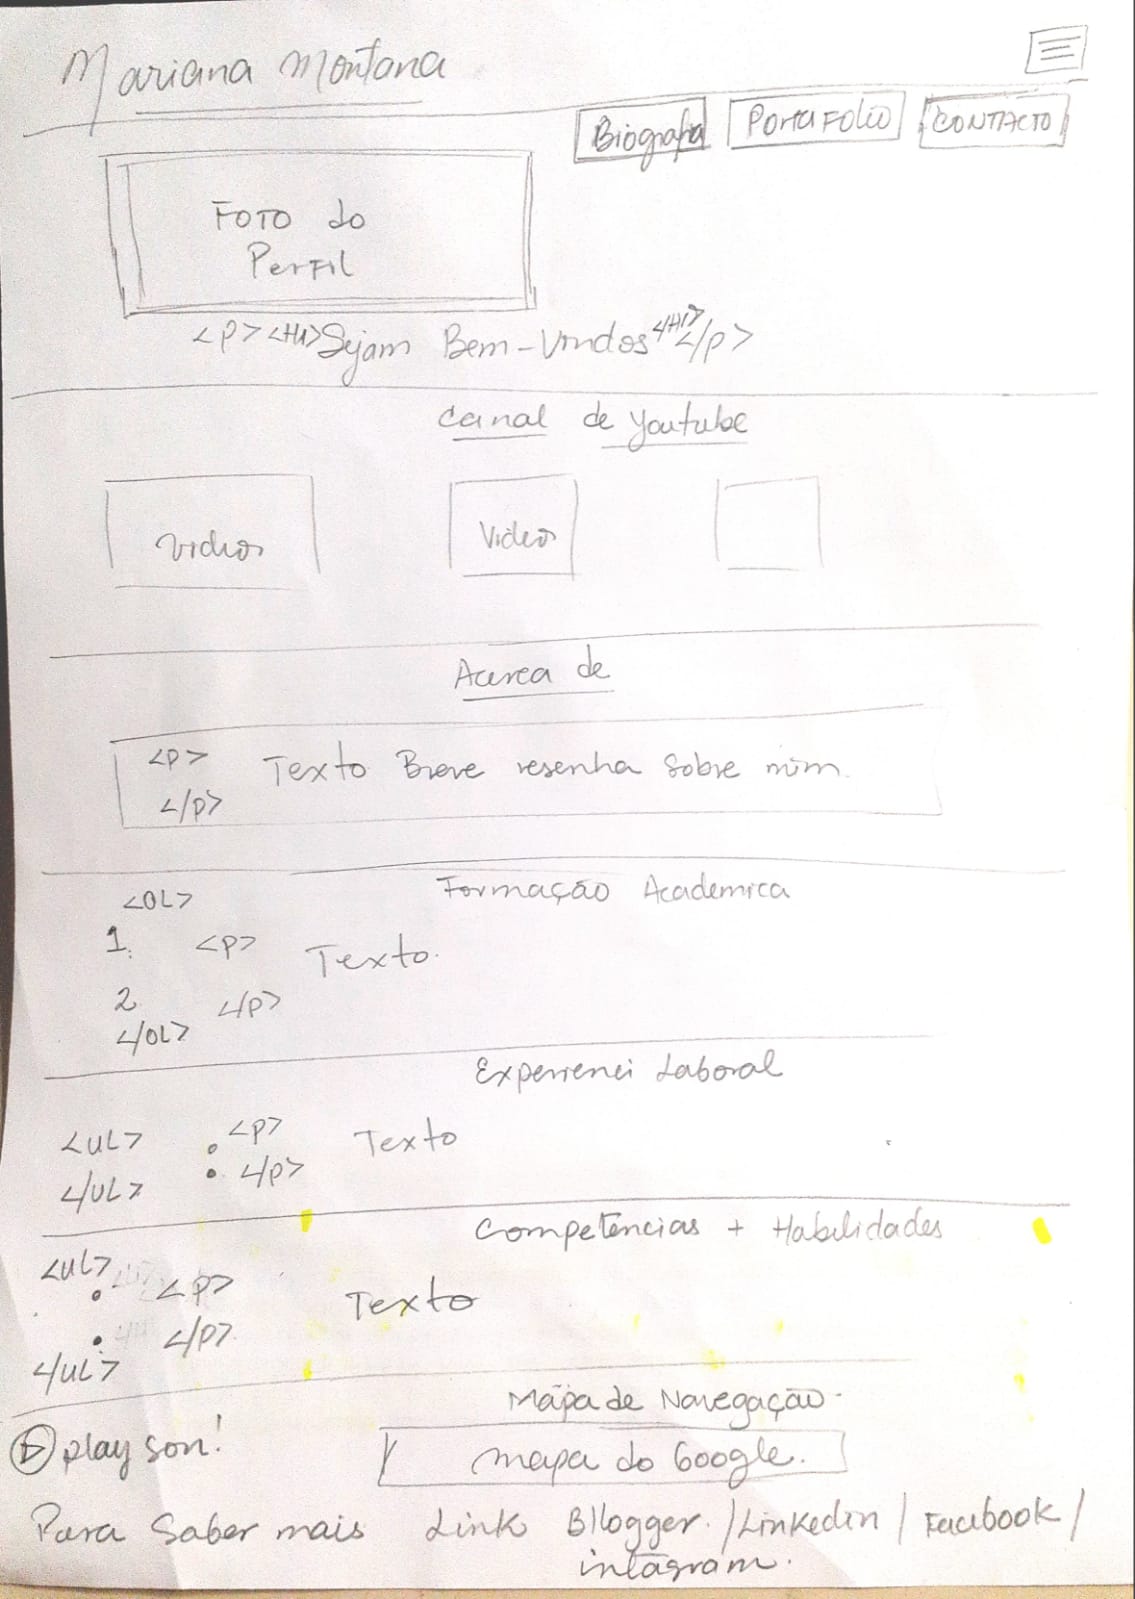 Mariana Montana
Biografia
PortaFolio
CONTACTO
FOTO do
Perfil
<p><H1>Sejam Bem-Vindos</H1></p>
Canal de Youtube
Videos
Videos
Acerca de
<p>
Texto Breve resenha sobre mim.
</p>
Formação Academica
<OL>
1. <p> Texto.
2 </p>
</OL>
Experienci Laboral
<UL> <p> Texto
</UL> </p>
Competências + Habilidades
<UL>
<p> Texto
</p>
</UL>
Mapa de Navegação.
play son!
mapa do Google.
Para Saber mais Link Bllogger. / Linkedin / Facebook /
intagram.